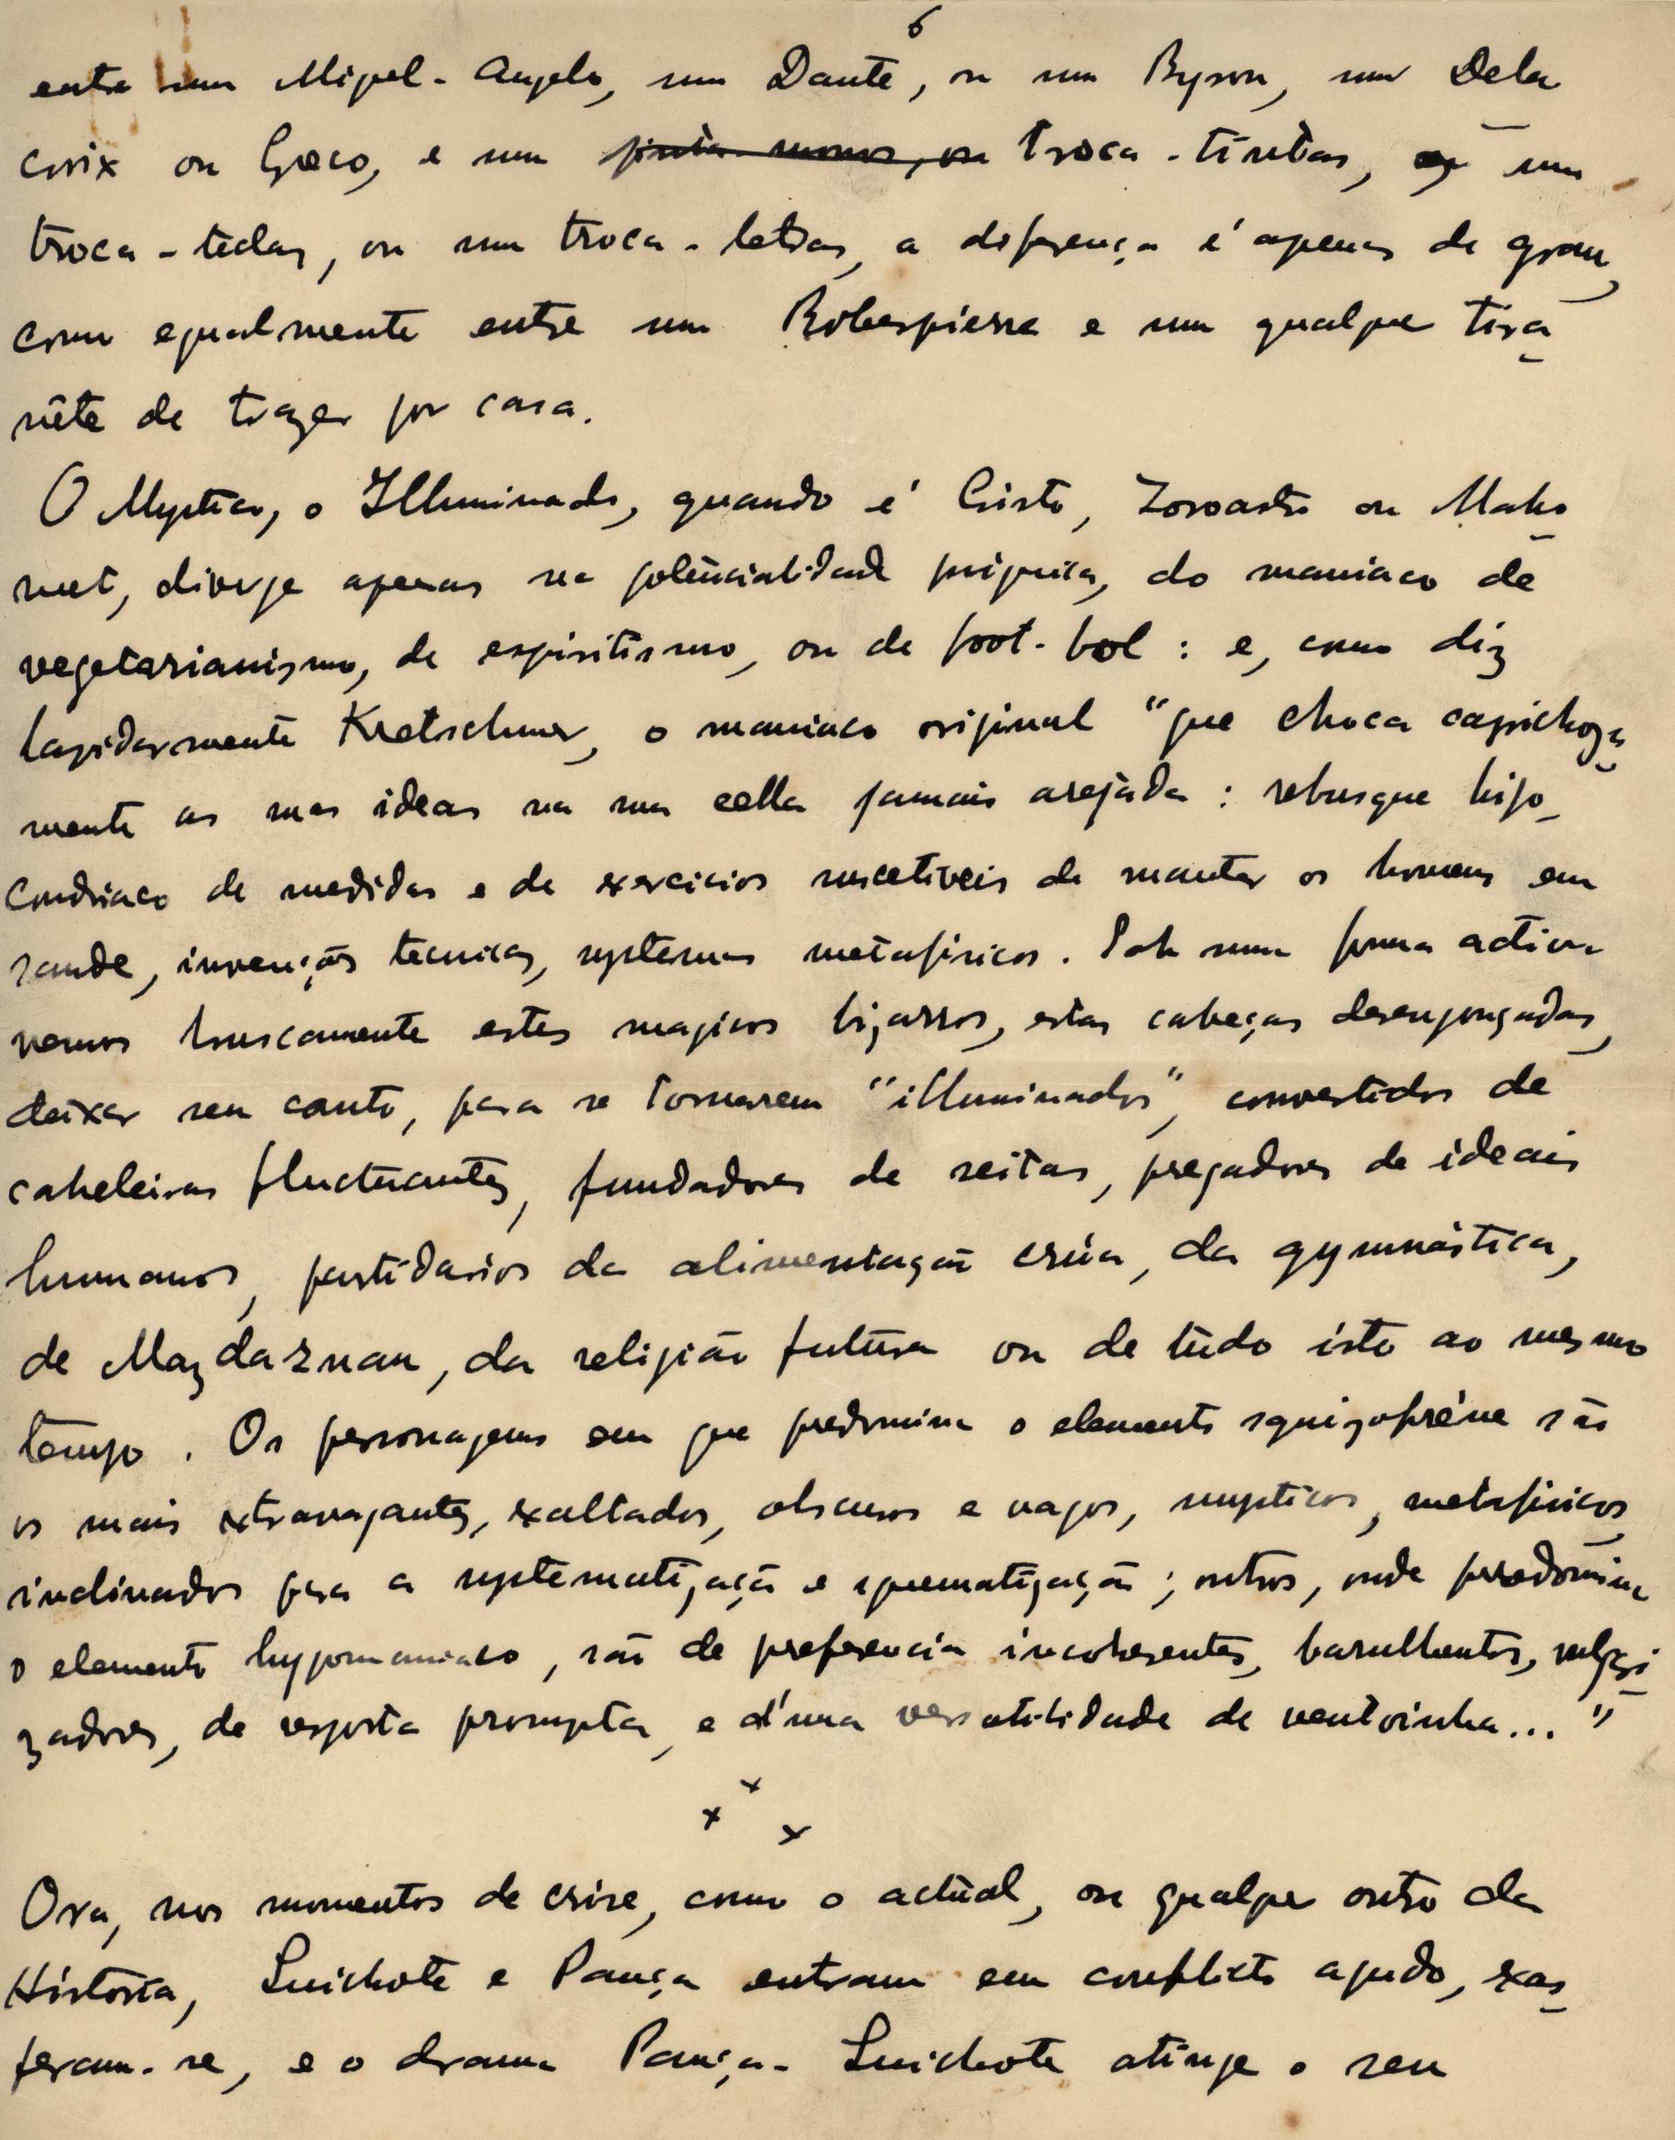 6
entre um Miguel-Angelo, um Dante, ou um Byron, um Dela
croix ou Greco, e um pinta-monos, ou troca-tintas, um
troca-teclas, ou um troca-letras, a diferença é apenas de grau,
como egualmente entre um Robespierre e um qualquer tira
nête de trazer por casa.
O Mystico, o Illuminado, quando é Cristo, Zoroastro ou Maho
met, diverge apenas na potencialidade psiquica, do maniaco de
vegetarianismo, de espiritismo, ou de foot-bol: e, como diz
lapidarmente Kretschmer, o maniaco original "que choca caprichosa
mente as suas ideas na sua cella jamais arejada: rebusque hipo
condriaco de medidas e de exercicios suscetiveis de manter os homens em
saude, invenções tecnicas, systemas metafisicos. Sob uma forma activa
vemos bruscamente estes magicos bizarros, estas cabeças desengonçadas,
deixar seu canto, para se tornarem "illuminados", convertidos de
cabeleiras fluctuantes, fundadores de seitas, pregadores de ideais
humanos, partidarios da alimentação crúa, da gymnástica,
de Mazdaznan, da religião futura ou de tudo isto ao mesmo
tempo. Os personagens em que predomina o elemento squizofréne são
os mais extravagantes, exaltados, obscuros e vagos, mysticos, metafisicos,
inclinados para a systematização e squematização; outros, onde predomina
o elemento hypomaniaco, são de preferencia incoherentes, barulhentos, vulgari
zadores, de resposta prompta, e d'uma versatilidade de ventoinha..."
x x x
Ora, nos momentos de crise, como o actual, ou qualquer outro da
Historia, Quichote e Pança entram em conflicto agudo, exas
peram-se, e o drama Pança-Quichote atinge o seu